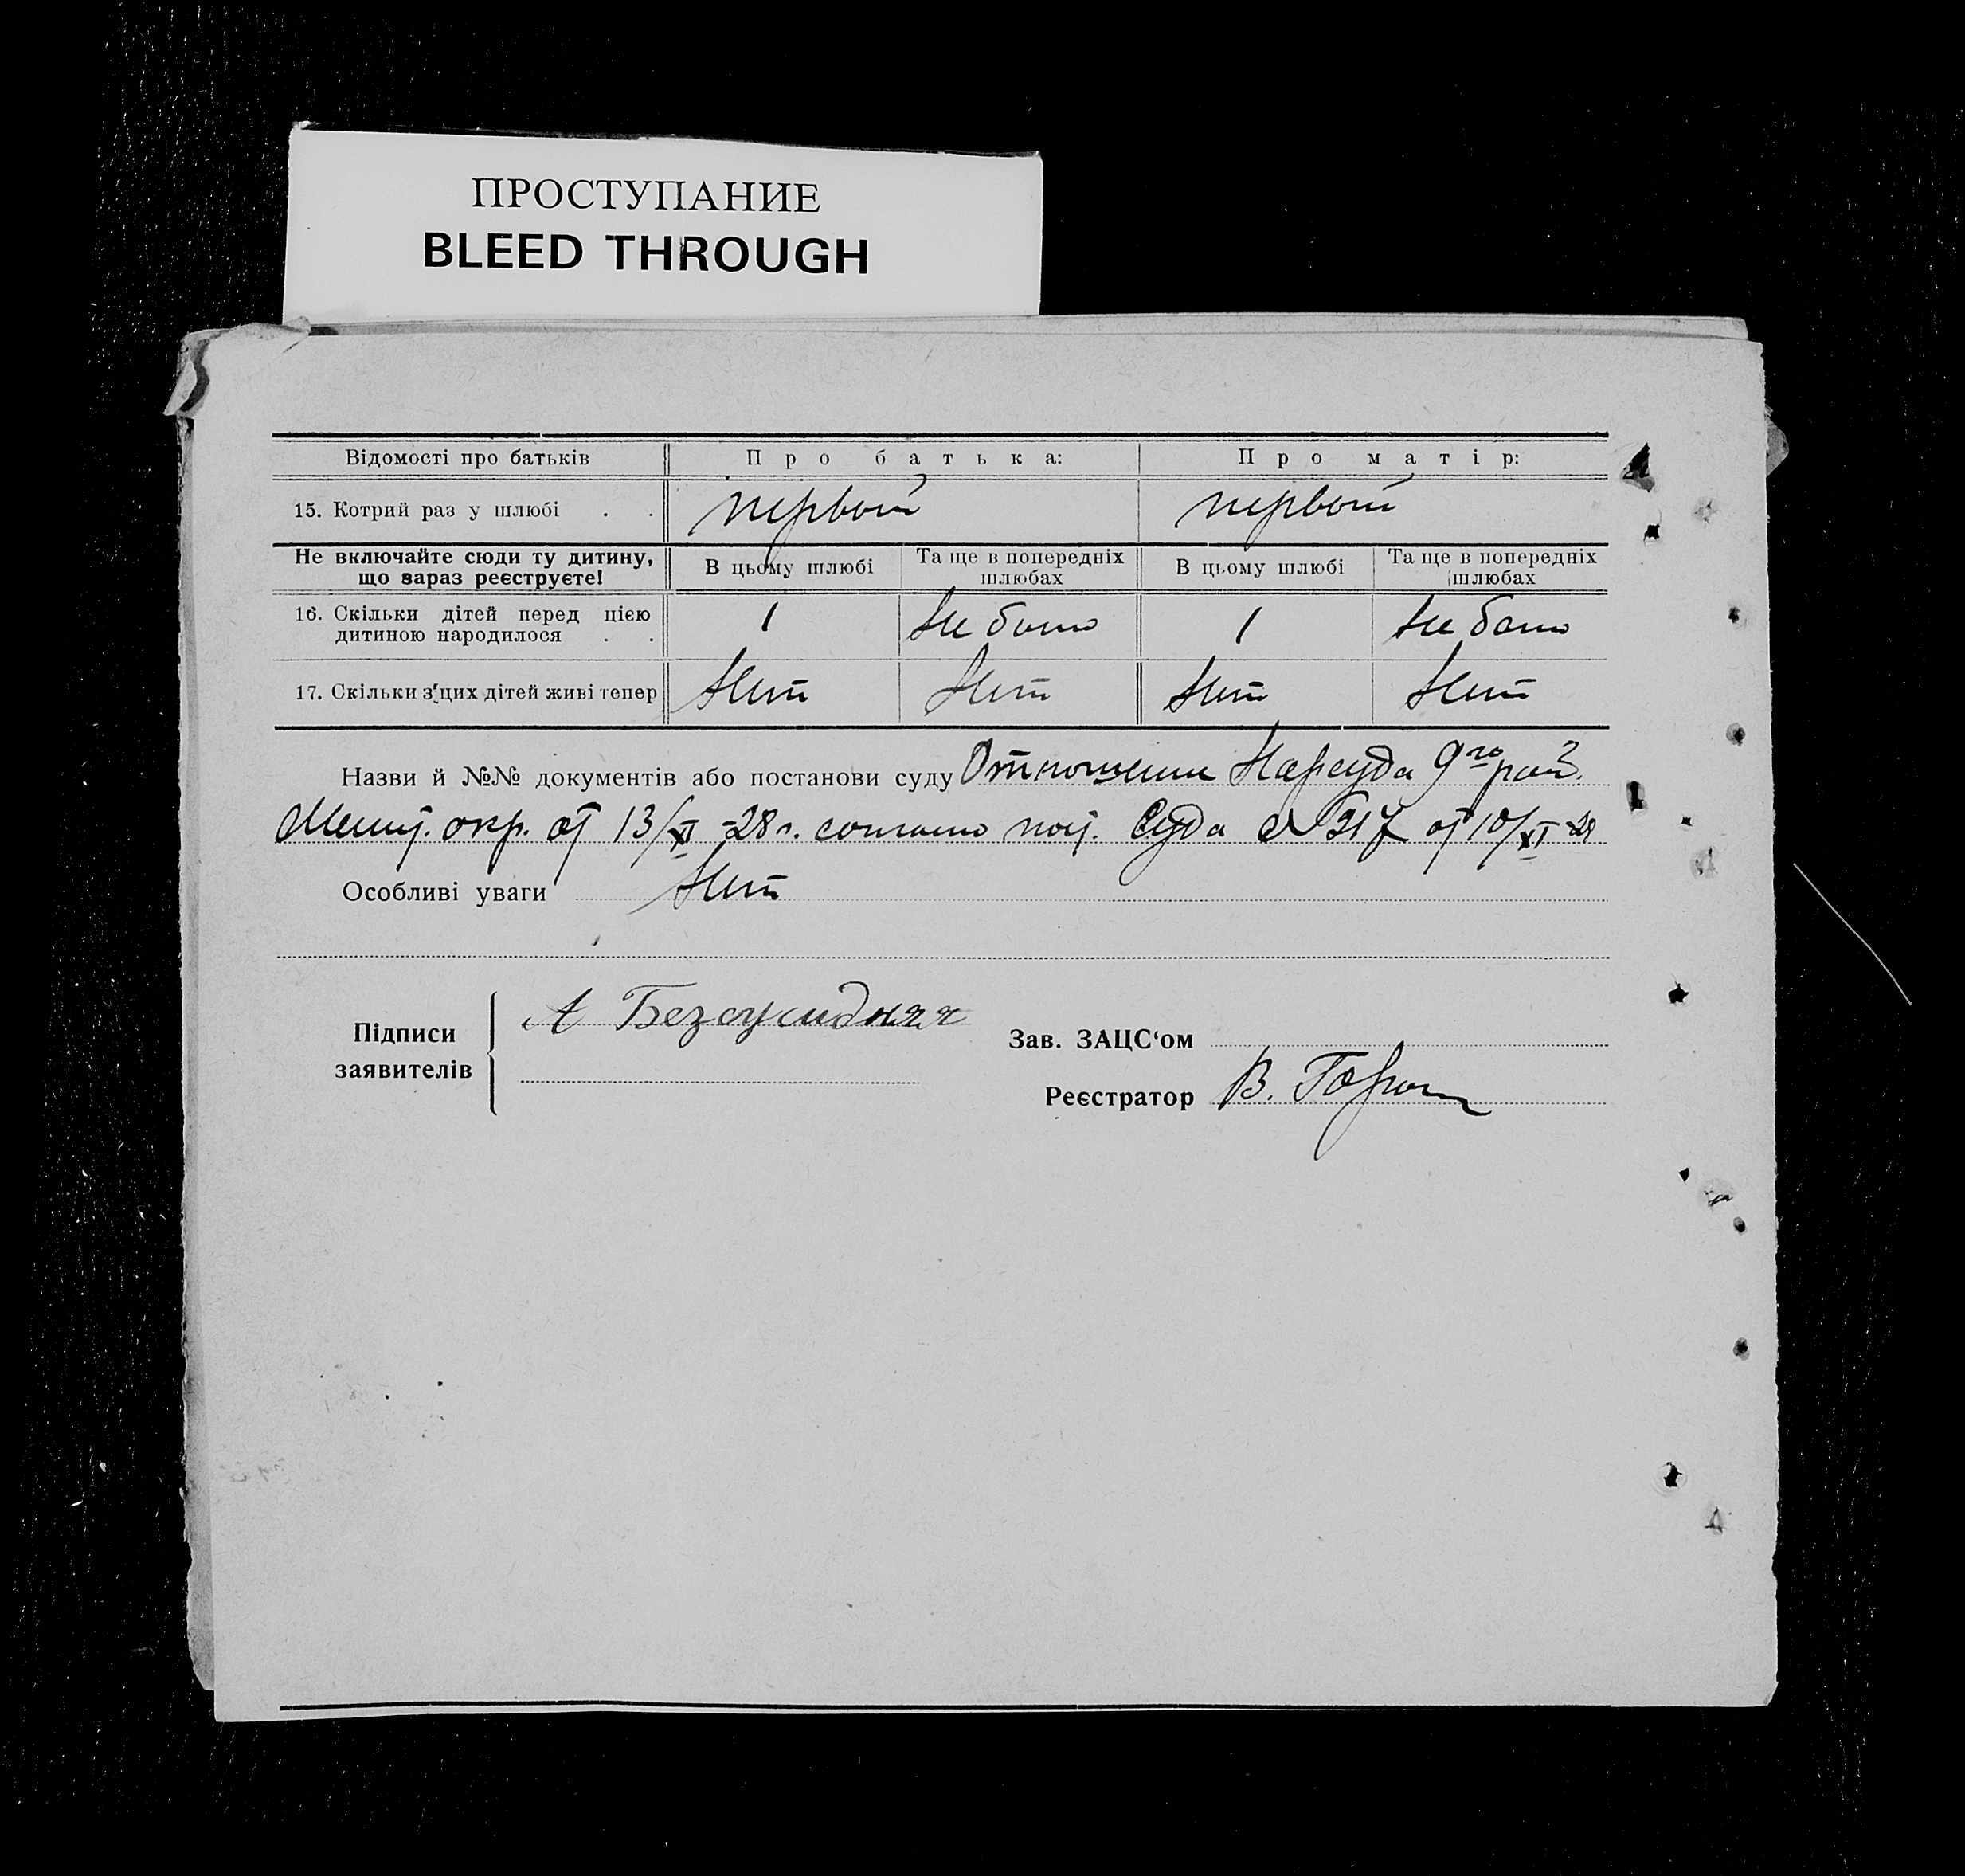 ПРОСТУПАНИЕ
BLEED THROUGH
Відомості про батьків Про батька: Про матір:
15. Котрий раз у шлюбі . . первый первый
Не включайте сюди ту дитину, що зараз реєструєте! В цьому шлюбі Та ще в попередніх шлюбах В цьому шлюбі Та ще в попередніх шлюбах
16. Скільки дітей перед цією дитиною народилося . . 1 Не было 1 Не было
17. Скільки з цих дітей живі тепер Нет Нет Нет Нет
Назви й №№ документів або постанови суду Отношение Нарсуда 9го рай.
окр. от 13/XI -28 г. согласно пост. Суда № 217 от 10/XI 28
Особливі уваги Нет
Підписи заявителів А
Зав. ЗАЦС‘ом
Реєстратор В.